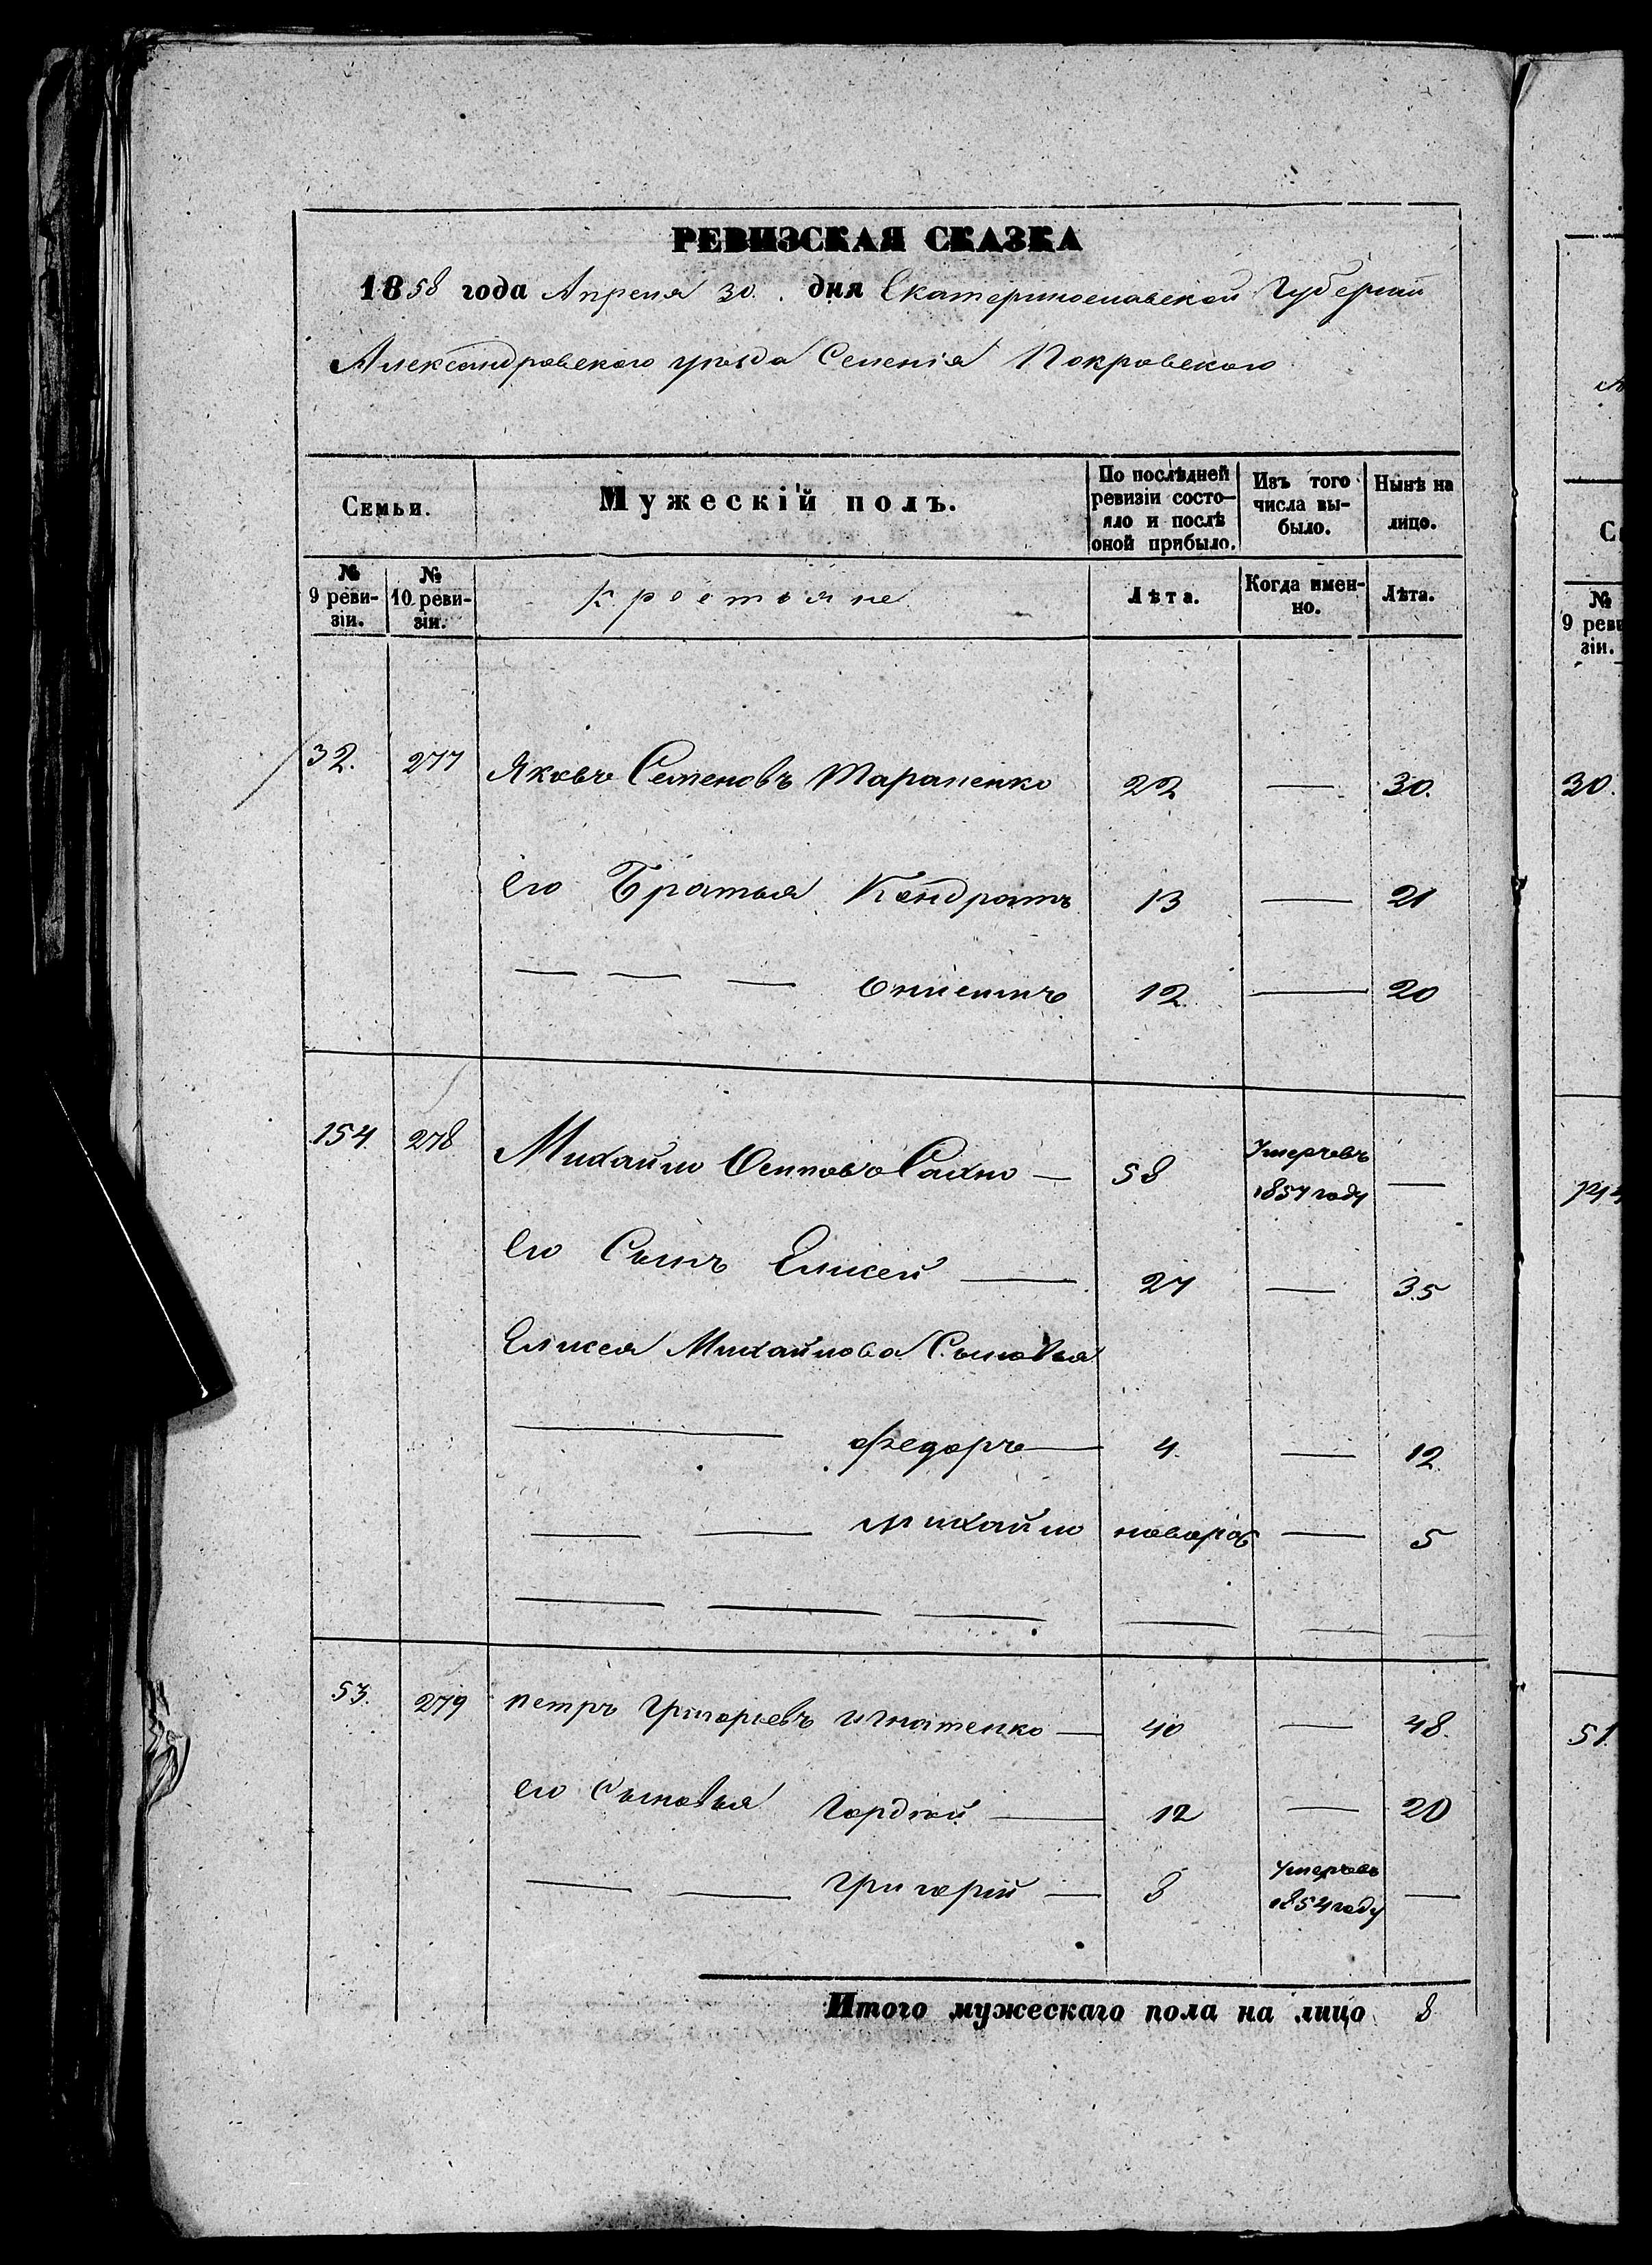 РЕВИЗСКАЯ СКАЗКА
1858 года Апреля 30. дня Екатеринославской Губернии
Александровского уѣзда Селенія Покровского
Семьи. Мужескій полъ. По послѣдней ревизіи состояло и послѣ оной прибыло. Изъ того числа выбыло. Нынѣ на лицо.
№ 9 ревизіи. № 10 ревизіи. Крестьяне Лѣта. Когда именно. Лѣта.
32. 277 Яковъ Семеновъ Тараненко 22 — 30.
его Братья Кондратъ 13 — 21
— — — Онисимъ 12 — 20
154 278 Михайло Осиповъ Сахно — 58 Умеръ въ 1857 году —
его Сынъ Елисей — 27 — 35
Елисея Михайлова Сыновья
— Федоръ — 4. — 12.
— — Михайло новорож — 5
— — — — — —
53. 279 Петръ Григорьевъ Игнатенко — 40 — 48.
его Сыновья Гордѣй — 12 — 20
— — Григорій — 8 Умеръ въ 1854 году —
Итого мужескаго пола на лицо 8
С
№ 9 реви
зіи.
30.
51.